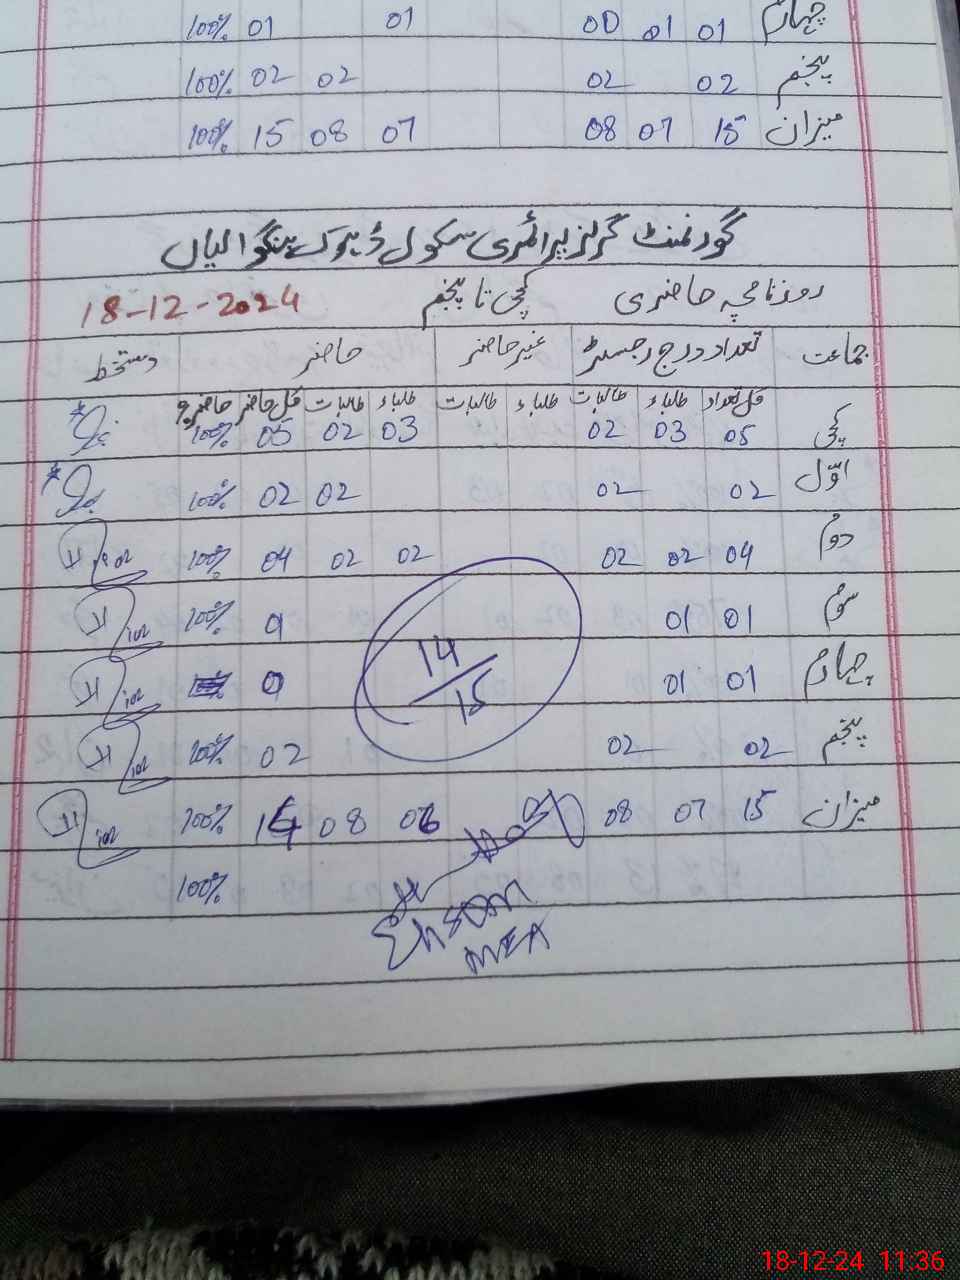 چہارم 01 01 00 01 01 100%
پنجم 02 02 02 02 100%
میزان 15 07 08 07 08 15 100%
گورنمنٹ گرلز پرائمری سکول ڈھوک ہنگوالیاں
روزنامچہ حاضری کچی تا پنجم 18-12-2024
جماعت تعداد درج رجسٹر غیر حاضر حاضر دستخط
کل تعداد طلباء طالبات طلباء طالبات طلباء طالبات کل حاضر حاضری%
کچی 05 03 02 03 02 05 100%
اوّل 02 02 02 02 100%
دوم 04 02 02 02 02 04 100%
سوم 01 01 0 100%
چہارم 01 01 0
14/15
پنجم 02 02 02 100%
میزان 15 07 08 06 08 14 100%
100%
Ehsan
MEA
18-12-24 11:36